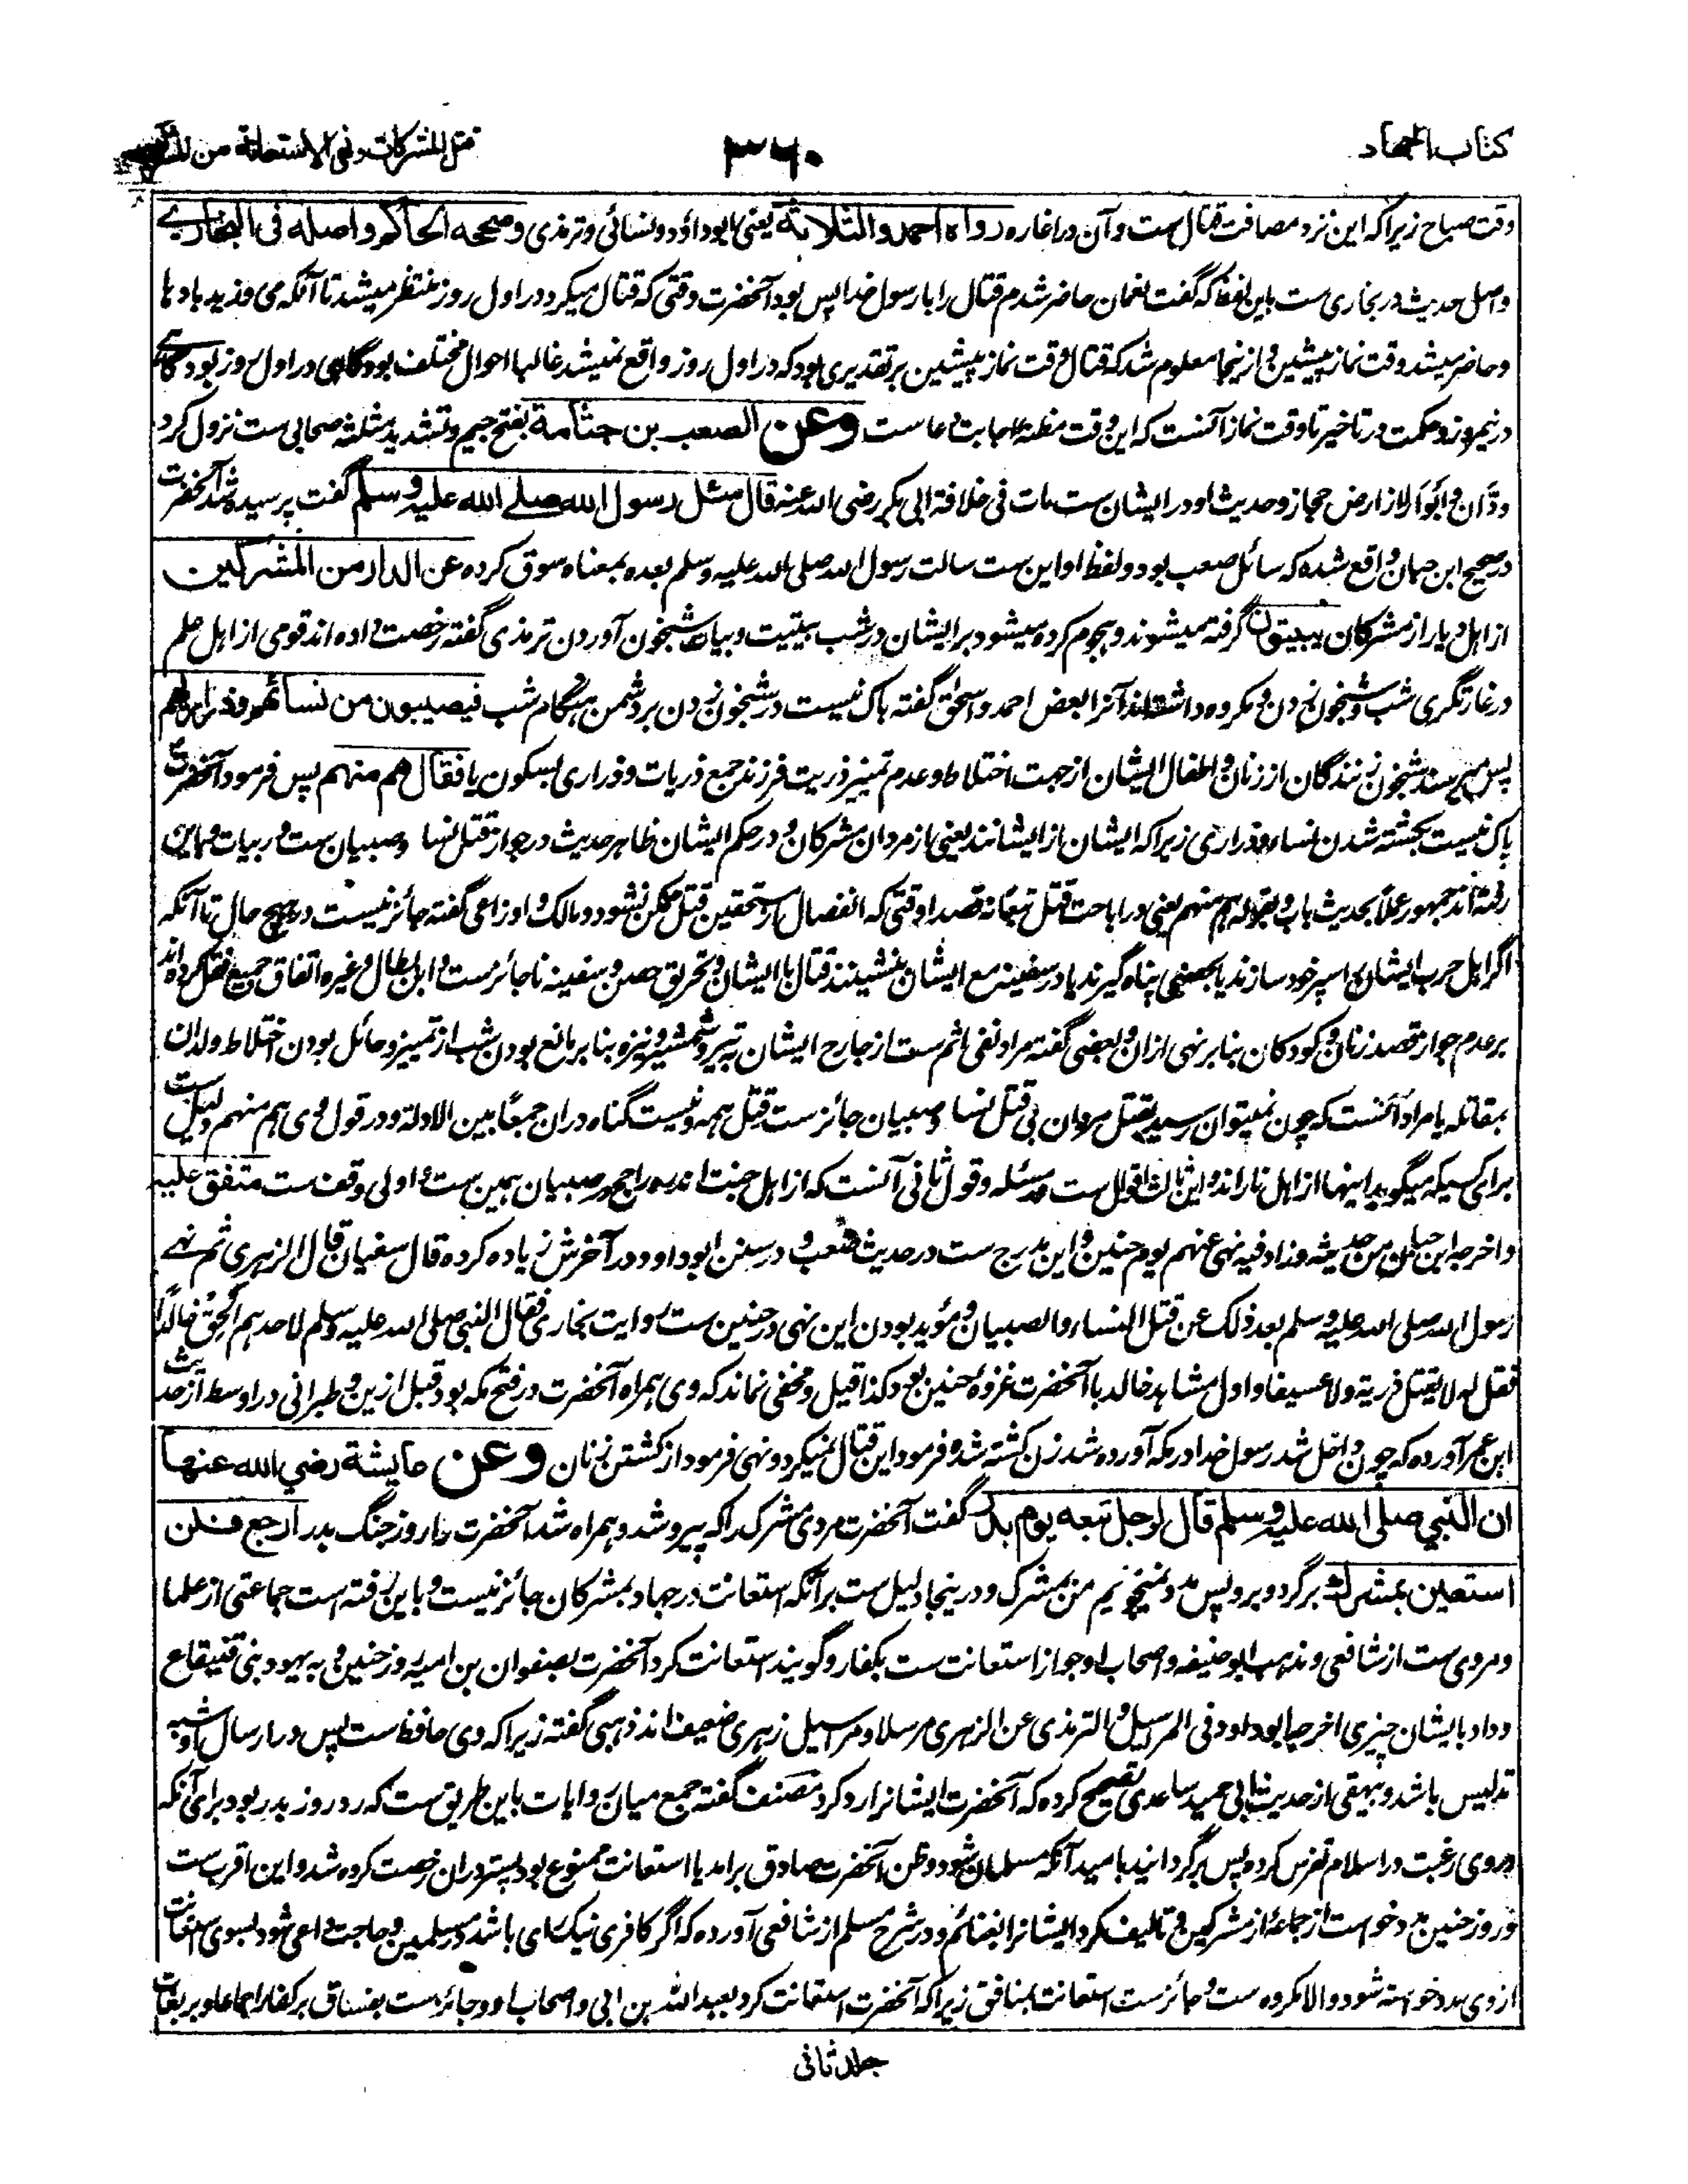 کتاب الجهاد
۳۶۰
قتل المشرکات و نفی الاستعانة من
وقت صباح زیراکه این نزد مصافت قتال ست و آن در اغاره رواه احمد والثلاثة یعنی ابوداؤد و نسائی و ترمذی وصححه الحاکم واصله فی البخاری
واصل حدیث در بخاری ست باین لفظ که گفت نعمان حاضر شدم قتال را با رسول خدا پس بود آنحضرت وقتی که قتال میکرد در اول روز منتظر میشد تا آنکه می وزید بادها
و حاضر میشد وقت نماز پیشین و ازینجا معلوم شد که قتال وقت نماز پیشین بر تقدیری بود که در اول روز واقع نمیشد غالبا احوال مختلف بود گاهی در اول روز بود گاهی
در نیمروز و حکمت در تاخیر تا وقت نماز آنست که این وقت مظنهٔ اجابت دعاست وعن الصعب بن جثامة بفتح جیم و تشدید مثلثه صحابی ست نزول کرد
ودّان و ابوا را از ارض حجاز و حدیث او در ایشان ست مات فی خلافة ابی بکر رضی الله عنه قال سئل رسول الله صلی الله علیه وسلم گفت پرسیده شد آنحضرت
در صحیح ابن حبان واقع شده که سائل صعب بود و لفظ او این ست سالت رسول الله صلی الله علیه وسلم بعده بمعناه سوق کرده عن الدار من المشرکین
از اهل دیار از مشرکان یبیتون گرفته میشوند و هجوم کرده میشود بر ایشان در شب بیتیت و بیات شبخون آوردن ترمذی گفته رخصت داده اند قومی از اهل علم
در غارتگری شب و شبخون زدن و مکروه داشته اند آنرا بعض احمد و اسحٰق گفته باک نیست در شبخون زدن بر دشمن هنگام شب فیصیبون من نسائهم وذراریهم
پس میرسند شبخون زنندگان از زنان و اطفال ایشان از جهت اختلاط و عدم تمییز ذریت فرزند جمع ذریات و ذراری بسکون یا فقال هم منهم پس فرمود آنحضرت
باک نیست بکشته شدن نساء و ذراری زیراکه ایشان از ایشانند یعنی از مردان مشرکان و در حکم ایشان ظاهر حدیث در جواز قتل نسا و صبیان ست در بیات و باین
رفته اند جمهور عملا بحدیث باب و بقوله هم منهم یعنی در اباحت قتل تبعًا نه قصدا وقتی که انفصال از مستحقین قتل ممکن نشود و مالک و اوزاعی گفته جائز نیست در هیچ حال تا آنکه
اگر اهل حرب ایشان را سپر خود سازند یا بحصنی پناه گیرند یا در سفینه مع ایشان بنشینند قتال با ایشان و تحریق حصن و سفینه ناجائز ست و ابن بطال و غیره اتفاق جمیع نقل کرده اند
بر عدم جواز قصد زنان و کودکان بنا بر نهی ازان و بعضی گفته مراد نفی اثم ست از جارح ایشان به تیر و شمشیر و نیزه بنا بر مانع بودن شب از تمییز و حائل بودن اختلاط ولدان
بمقاتله یا مراد آنست که چون نمیتوان رسید بقتل مردان بی قتل نسا و صبیان جائز ست قتل همه و نیست گناه دران جمعًا بین الادلة و در قول وی هم منهم دلیل ست
برای کسیکه میگوید اینها از اهل نار اند و این ثالث اقوال ست در مسئله و قول ثانی آنست که از اهل جنت اند و راجح در صبیان همین ست و اولی وقف ست متفق علیه
واخرجه ابن حبان من حدیثه وزاد فیه نهی عنهم یوم حنین و این مدرج ست در حدیث صعب و در سنن ابوداود در آخرش زیاده کرده قال سفیان قال الزهری ثم نهی
رسول الله صلی الله علیه وسلم بعد ذلک عن قتل النساء والصبیان و مؤید بودن این نهی در حنین ست روایت بخاری فقال النبی صلی الله علیه وسلم لاحدهم الحق خالدًا
فقل له لا یقتل ذریة ولا عسیفا و اول مشاهد خالد با آنحضرت غزوهٔ حنین بود کذا قیل و مخفی نماند که وی همراه آنحضرت در فتح مکه بود قبل ازین و طبرانی در اوسط از حدیث
ابن عمر آورده که چون داخل شد رسول خدا در مکه آورده شد زن کشته شده فرمود این قتال نمیکرد و نهی فرمود از کشتن زنان وعن عایشة رضی الله عنها
ان النبی صلی الله علیه وسلم قال لرجل تبعه یوم بدر گفت آنحضرت مردی مشرک را که پیرو شد و همراه شد آنحضرت را روز جنگ بدر ارجع فلن
استعین بمشرك برگرد و برو پس مدد نمیخواهیم من بمشرک و درینجا دلیل ست بر آنکه استعانت در جهاد بمشرکان جائز نیست و باین رفته است جماعتی از علما
و مروی ست از شافعی و مذهب ابو حنیفه و اصحاب او جواز استعانت ست بکفار و گویند استعانت کرد آنحضرت بصفوان بن امیه روز حنین و به یهود بنی قینقاع
و داد بایشان چیزی اخرجه ابوداود فی المراسیل والترمذی عن الزهری مرسلا و مراسیل زهری ضعیف اند ذهبی گفته زیراکه وی حافظ ست پس در ارسال او شبه
تدلیس باشد و بیهقی از حدیث ابی حمید ساعدی تصحیح کرده که آنحضرت ایشانرا رد کرد مصنف گفته جمع میان روایات باین طریق ست که رد روز بدر بود برای آنکه
در وی رغبت در اسلام تفرس کرده پس برگردانید بامید آنکه مسلمان شود و ظن آنحضرت صادق برامد یا استعانت ممنوع بود پستر دران رخصت کرده شد و این اقرب ست
و روز حنین مدد خواست از جماعهٔ از مشرکین و تالیف کرد ایشانرا بغنائم و در شرح مسلم از شافعی آورده که اگر کافری نیک رای باشد در مسلمین و حاجت داعی شود بسوی استعانت
از وی مدد خواسته شود والا مکروه ست و جائز ست استعانت بمنافق زیراکه آنحضرت استعانت کرد بعبد الله بن ابی و اصحاب او و جائز ست بفساق بر کفار اجماعا و بر بغات
جلد ثانی